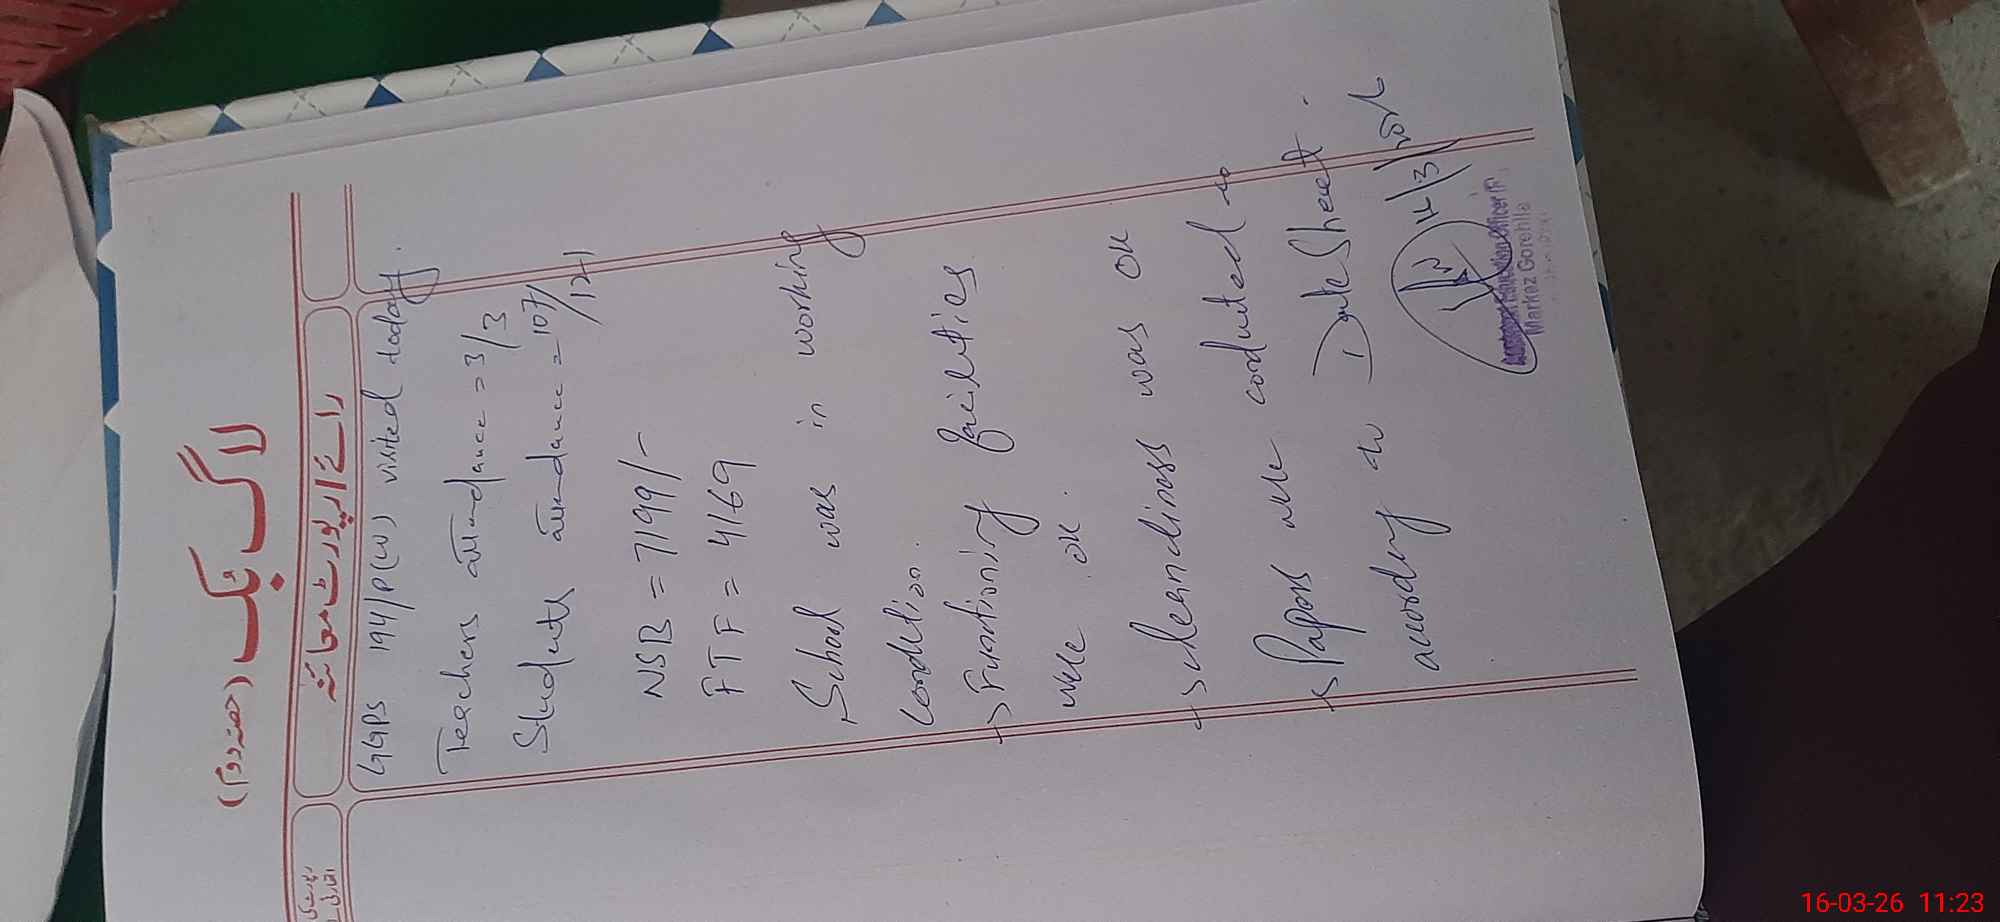 لاگ بک (حصہ دوم)
رائے / رپورٹ معائنہ
GGPS 194/P(W) visited today.
Teachers attendance = 3/3
Students attendance = 107/121
NSB = 7199/-
FTF = 4169
School was in working
Condition.
→ Functioning facilities
were ok.
→ cleanliness was ok
→ Papers were conducted
according to Date Sheet.
Officer
Markaz Gorehila
16-03-26 11:23